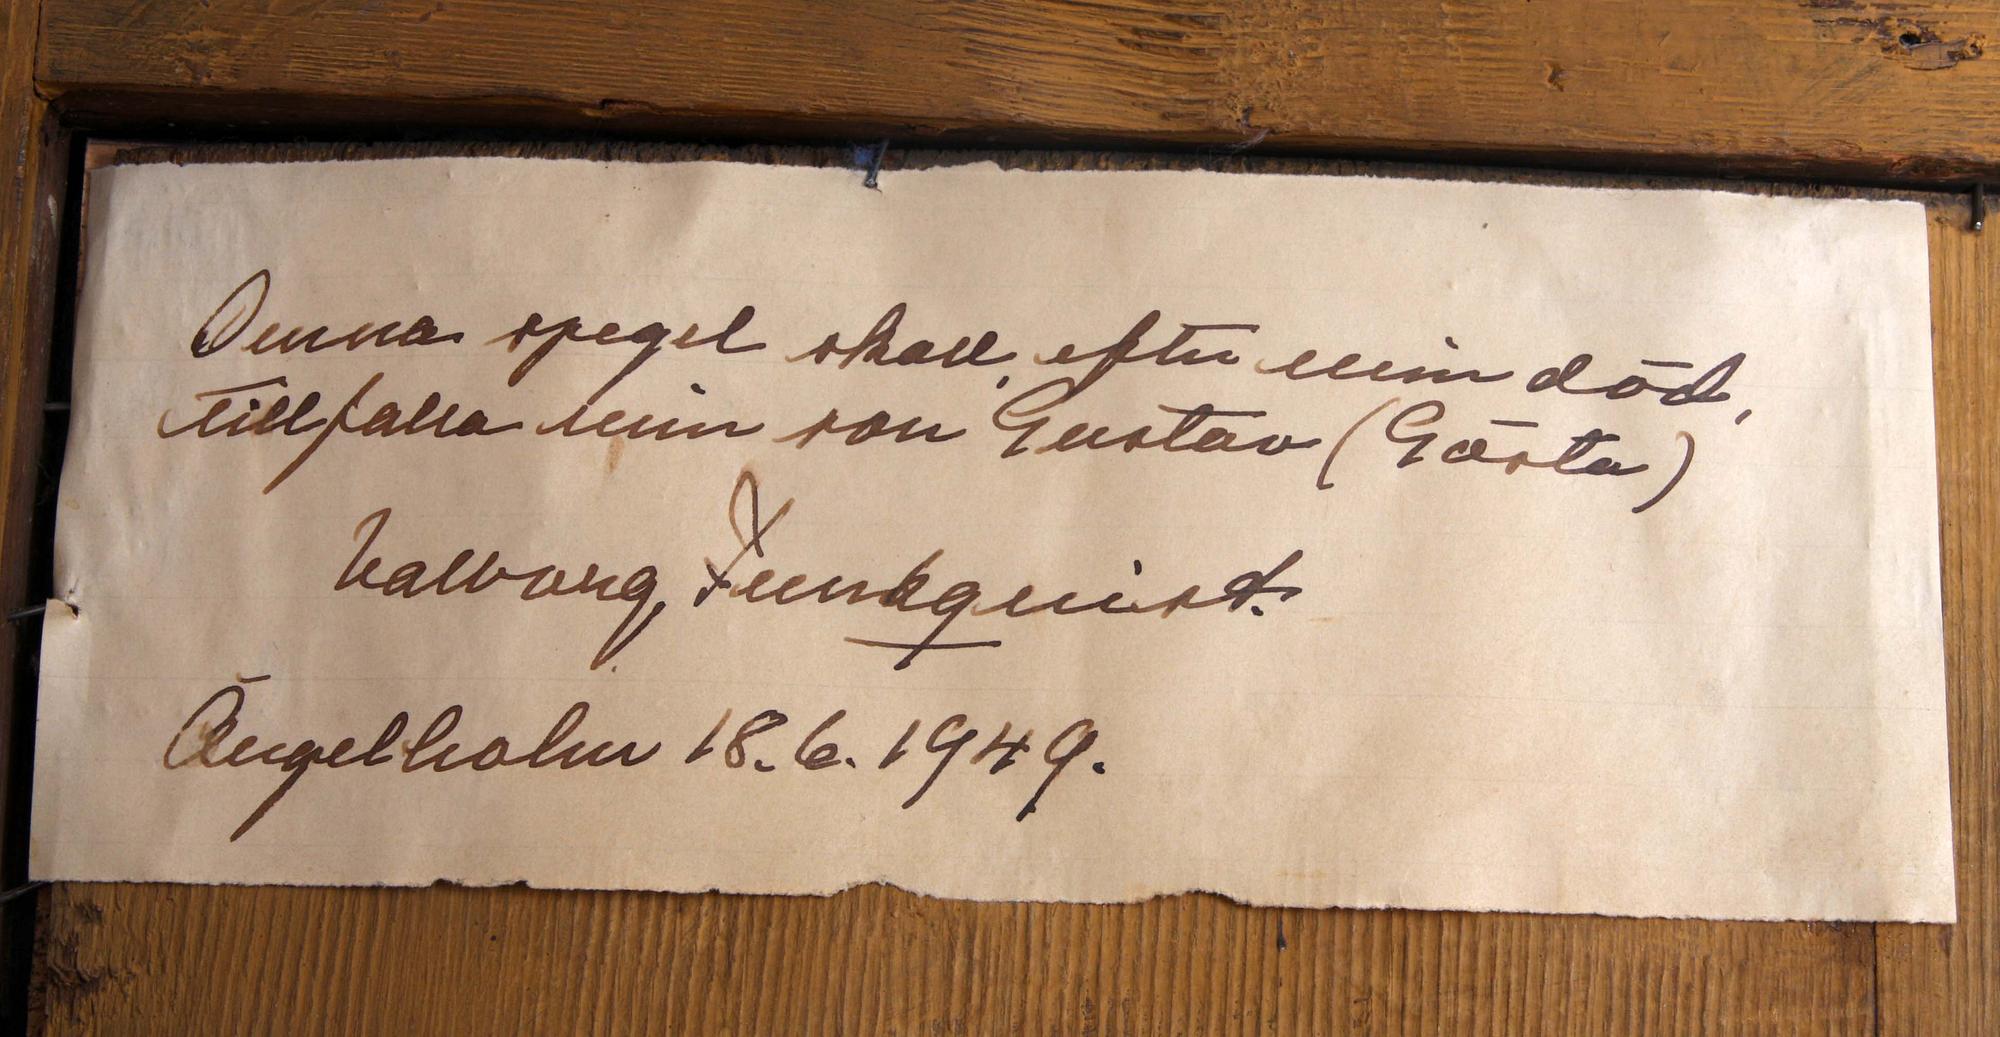 Denna spegel skall, efter min död,
tillfalla min son Gustav (Gösta)
Valborg
Ängelholm 18.6.1949.